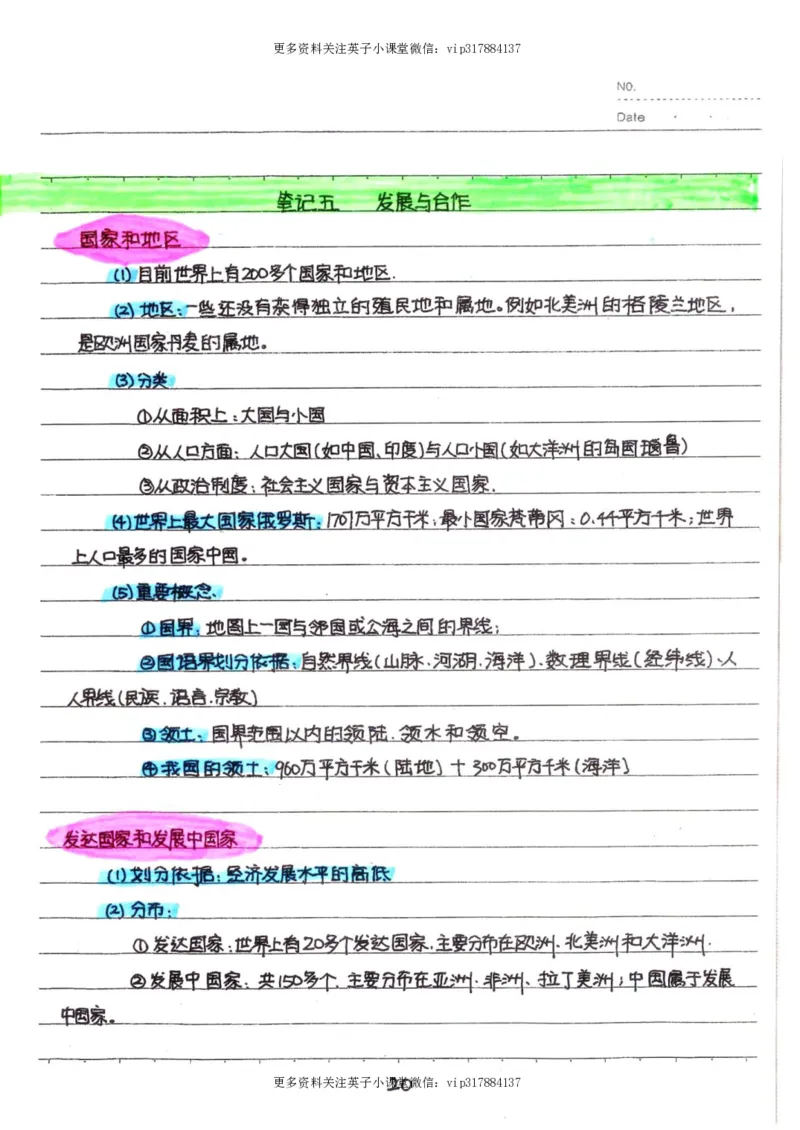 更多资料关注英子小课堂微信：vip317884137
NO.
Date
笔记五 发展与合作
国家和地区
(1)目前世界上有200多个国家和地区.
(2)地区:一些还没有获得独立的殖民地和属地。例如北美洲的格陵兰地区,
是欧洲国家丹麦的属地。
(3)分类
①从面积上:大国与小国
②从人口方面:人口大国(如中国、印度)与人口小国(如大洋洲的岛国瑙鲁)
③从政治制度:社会主义国家与资本主义国家.
(4)世界上最大国家俄罗斯:1707万平方千米;最小国家梵蒂冈:0.44平方千米;世界
上人口最多的国家中国。
(5)重要概念、
①国界:地图上一国与邻国或公海之间的界线;
②国语界划分依据:自然界线(山脉.河湖.海洋).数理界线(经纬线)、人
人界线(民族.语言.宗教)
③领土:国界范围以内的领陆.领水和领空。
④我国的领土:960万平方千米(陆地)+300万平方千米(海洋)
发达国家和发展中国家
(1)划分依据:经济发展水平的高低
(2)分布:
①发达国家:世界上有20多个发达国家.主要分布在欧洲.北美洲和大洋洲.
②发展中国家:共150多个.主要分布在亚洲.非洲、拉丁美洲;中国属于发展
中国家。
20
更多资料关注英子小课堂微信：vip317884137